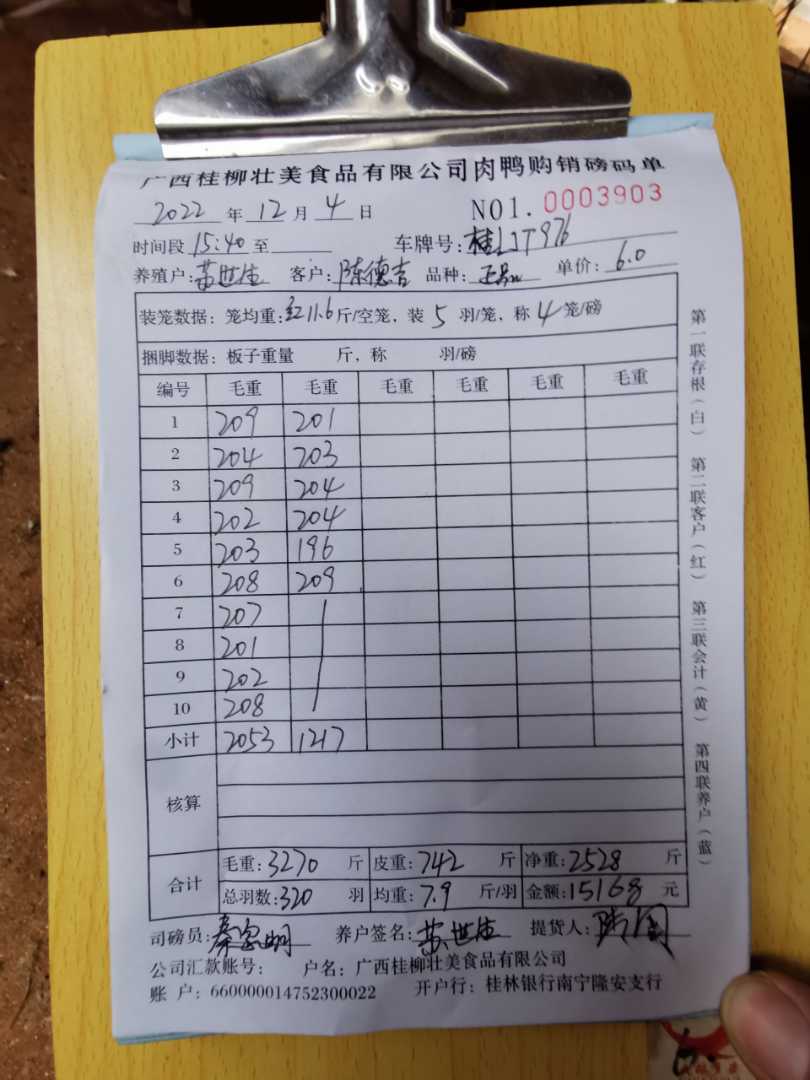 广西桂柳壮美食品有限公司肉鸭购销磅码单
2022年12月4日 NO1.0003903
时间段15:40至 车牌号:桂LJT976
养殖户:苏世生 客户:陈德吉 品种: 单价:6.0
装笼数据:笼均重:11.6斤/空笼,装5羽/笼,称4笼/磅
捆脚数据:板子重量 斤,称 羽/磅
编号 毛重 毛重 毛重 毛重 毛重 毛重
1 209 201
2 204 203
3 209 204
4 202 204
5 203 196
6 208 209
7 207
8 201
9 202
10 208
小计 2053 1217
核算
合计 毛重:3270斤 皮重:742斤 净重:2528斤
总羽数:320羽 均重:7.9斤/羽 金额:15168元
司磅员: 养户签名:苏世生 提货人:
公司汇款账号: 户名:广西桂柳壮美食品有限公司
账 户:660000014752300022 开户行:桂林银行南宁隆安支行
第一联存根(白) 第二联客户(红) 第三联会计(黄) 第四联养户(蓝)